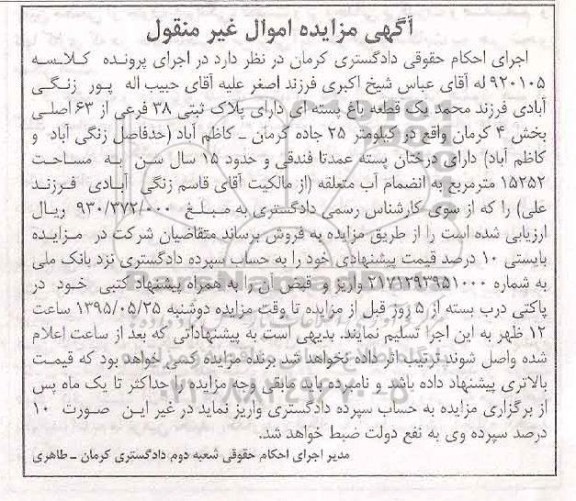 آگهی مزایده اموال غیر منقول
اجرای احکام حقوقی دادگستری کرمان در نظر دارد در اجرای پرونده کلاسه
۹۲۰۱۰۵ له آقای عباس شیخ اکبری فرزند اصغر علیه آقای حبیب اله پور زنگی
آبادی فرزند محمد یک قطعه باغ بسته ای دارای پلاک ثبتی ۳۸ فرعی از ۶۳ اصلی
بخش ۴ کرمان واقع در کیلومتر ۲۵ جاده کرمان ـ کاظم آباد (حدفاصل زنگی آباد و
کاظم آباد) دارای درختان پسته عمدتا فندقی و حدود ۱۵ سال سن به مساحت
۱۵۲۵۲ مترمربع به انضمام آب متعلقه (از مالکیت آقای قاسم زنگی آبادی فرزند
علی) را که از سوی کارشناس رسمی دادگستری به مبلغ ۹۳۰/۳۷۲/۰۰۰ ریال
ارزیابی شده است را از طریق مزایده به فروش برساند متقاضیان شرکت در مزایده
بایستی ۱۰ درصد قیمت پیشنهادی خود را به حساب سپرده دادگستری نزد بانک ملی
به شماره ۲۱۷۱۲۹۳۹۵۱۰۰۰ واریز و قبض آن را به همراه پیشنهاد کتبی خود در
پاکتی درب بسته از ۵ روز قبل از مزایده تا وقت مزایده دوشنبه ۱۳۹۵/۰۵/۲۵ ساعت
۱۲ ظهر به این اجرا تسلیم نمایند. بدیهی است به پیشنهاداتی که بعد از ساعت اعلام
شده واصل شوند ترتیب اثر داده نخواهد شد برنده مزایده کسی خواهد بود که قیمت
بالاتری پیشنهاد داده باشد و نامبرده باید مابقی وجه مزایده را حداکثر تا یک ماه پس
از برگزاری مزایده به حساب سپرده دادگستری واریز نماید در غیر این صورت ۱۰
درصد سپرده وی به نفع دولت ضبط خواهد شد.
مدیر اجرای احکام حقوقی شعبه دوم دادگستری کرمان ـ طاهری